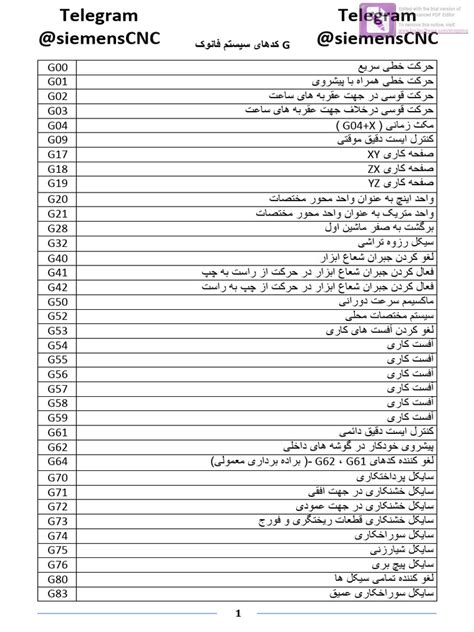 Telegram
@siemensCNC
G کدهای سیستم فانوک
Telegram
@siemensCNC
Edited with the trial version of
PDF Editor
To remove this notice, visit:
G00 حرکت خطی سریع
G01 حرکت خطی همراه با پیشروی
G02 حرکت قوسی در جهت عقربه های ساعت
G03 حرکت قوسی درخلاف جهت عقربه های ساعت
G04 مکث زمانی ( G04+X )
G09 کنترل ایست دقیق موقتی
G17 صفحه کاری XY
G18 صفحه کاری ZX
G19 صفحه کاری YZ
G20 واحد اینچ به عنوان واحد محور مختصات
G21 واحد متریک به عنوان واحد محور مختصات
G28 برگشت به صفر ماشین اول
G32 سیکل رزوه تراشی
G40 لغو کردن جبران شعاع ابزار
G41 فعال کردن جبران شعاع ابزار در حرکت از راست به چپ
G42 فعال کردن جبران شعاع ابزار در حرکت از چپ به راست
G50 ماکسیمم سرعت دورانی
G52 سیستم مختصات محلی
G53 لغو کردن آفست های کاری
G54 آفست کاری
G55 آفست کاری
G56 آفست کاری
G57 آفست کاری
G58 آفست کاری
G59 آفست کاری
G61 کنترل ایست دقیق دائمی
G62 پیشروی خودکار در گوشه های داخلی
G64 لغو کننده کدهای G61 ، G62 -( براده برداری معمولی)
G70 سایکل پرداختکاری
G71 سایکل خشنکاری در جهت افقی
G72 سایکل خشنکاری در جهت عمودی
G73 سایکل خشنکاری قطعات ریختگری و فورج
G74 سایکل سوراخکاری
G75 سایکل شیارزنی
G76 سایکل پیچ بری
G80 لغو کننده تمامی سیکل ها
G83 سایکل سوراخکاری عمیق
1